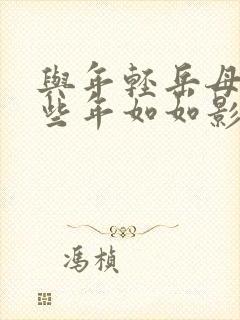 與年輕岳母
些年如如影
馮楨